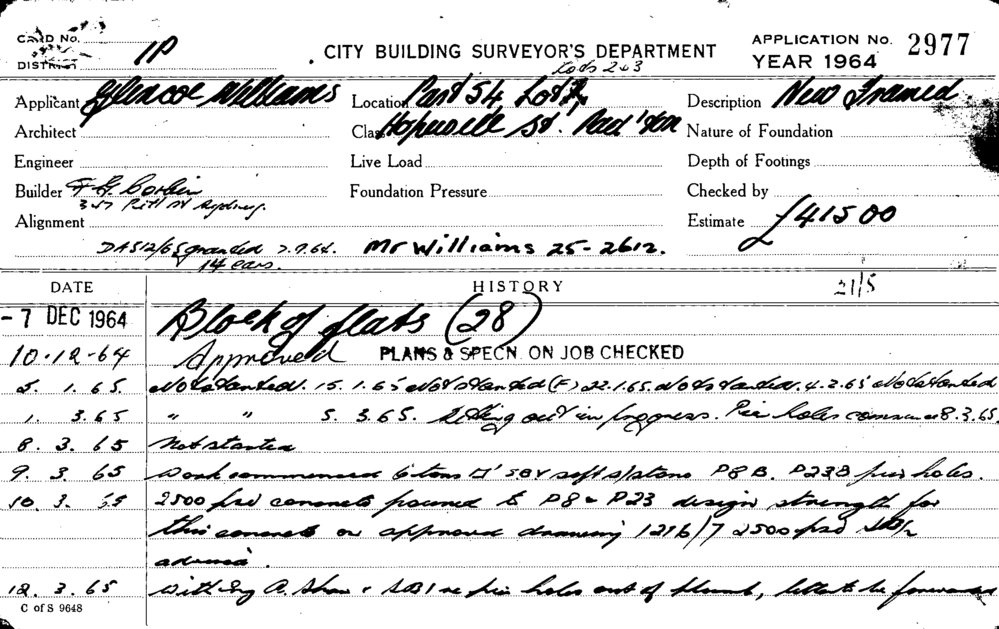 CARD No.
DISTRICT 1P
CITY BUILDING SURVEYOR'S DEPARTMENT
APPLICATION No. 2977
YEAR 1964
Lots 2&3
Applicant Glencoe Williams
Location Part 54, Lot
Description New Framed
Architect
Class Hopewell St. Padd'ton
Nature of Foundation
Engineer
Live Load
Depth of Footings
Builder F G Corbin
Foundation Pressure
Checked by
Pitt St Sydney.
Alignment
Estimate £41500
granted 2.9.64. Mr Williams 25-2612.
14 cars.
DATE HISTORY 21/5
-7 DEC 1964 Block of flats (28)
10-12-64 Approved PLANS & SPECN. ON JOB CHECKED
5. 1. 65. Not started. 15.1.65 Not started (F) 22.1.65. Not started. 4.2.65 Not started
1. 3.65 " " 5. 3.65. Setting out in progress. Pier holes commence 8.3.65.
8. 3. 65 Not started
9. 3. 65 Work commenced 6 tons soft s/stone P8B. P23B pier holes.
10. 3. 65 2500 psi concrete poured to P8 & P23 design strength for
this concrete on approved drawing 1216/7 2500 psi
12. 3. 65 with A. Shaw re pier holes out of plumb, letter to be forwarded
C of S 9648